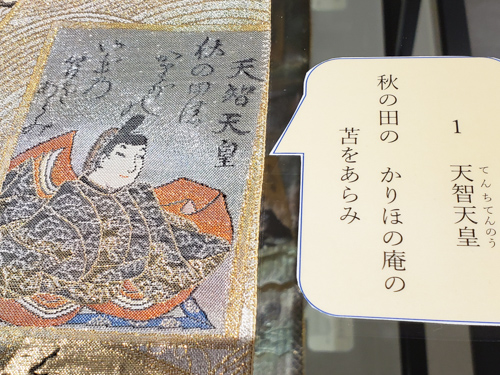 天智天皇
秋の田の
かりほの庵の
苫をあらみ
1 天智天皇
てんちてんのう
秋の田の かりほの庵の
苫をあらみ